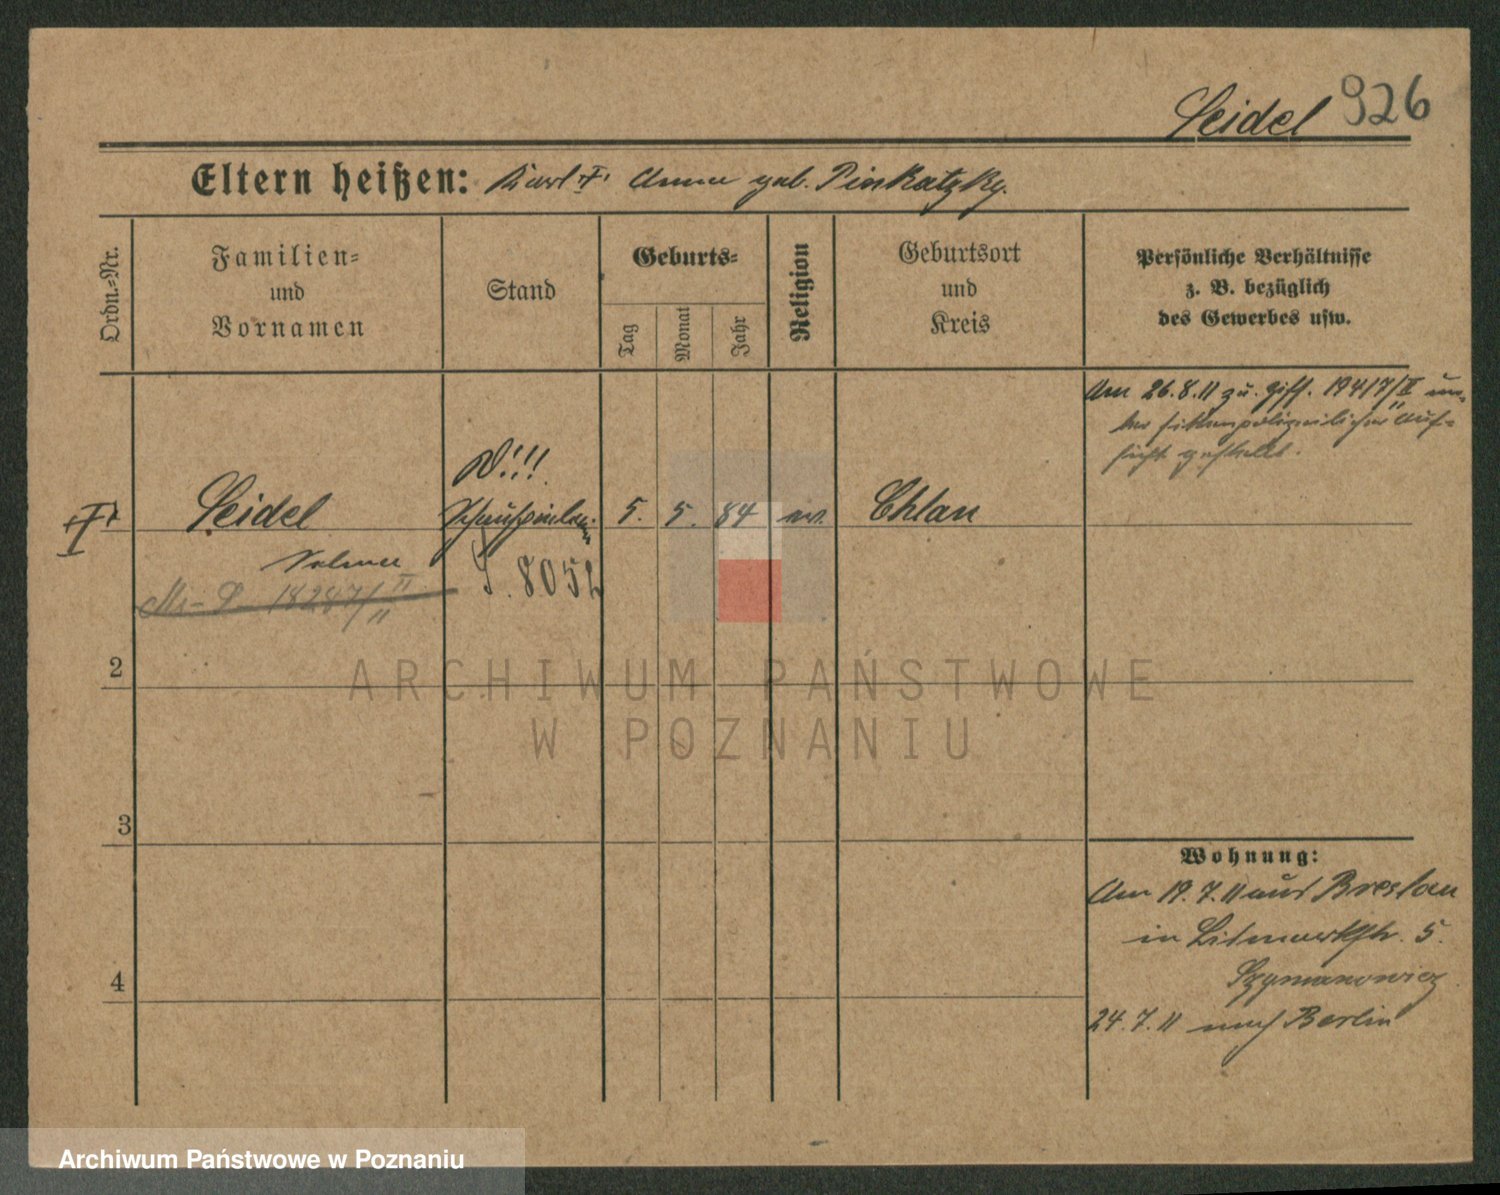 Seidel 926
Eltern heißen: Karl † Anna geb. Pinkatzky.
Ordn.-Nr.
Familien-
und
Vornamen
Stand
Geburts-
Tag
Monat
Jahr
Religion
Geburtsort
und
Kreis
Persönliche Verhältnisse
z. B. bezüglich
des Gewerbes usw.
Am 26.8.11 zu. Ziff. 19417/II un-
ter sittenpolizeilicher Auf-
sicht gestellt.
D!!!
Seidel Schauspielerin 5. 5. 84 ev. Ohlau
Selma
18247/II
S. 8052
2
ARCHIWUM PAŃSTWOWE
W POZNANIU
3
Wohnung:
Am 19.7.11 aus Breslau
in Bismarkstr. 5.
Szymanowicz
4
24.7.11 nach Berlin
Archiwum Państwowe w Poznaniu